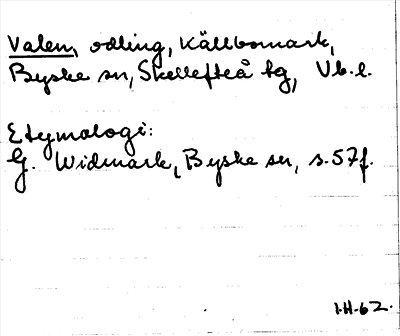 Valen, odling, Källbomark,
Byske sn, Skellefteå tg, Vb.l.
Etymologi:
G. Widmark, Byske sn, s.57f.
1.H.62.